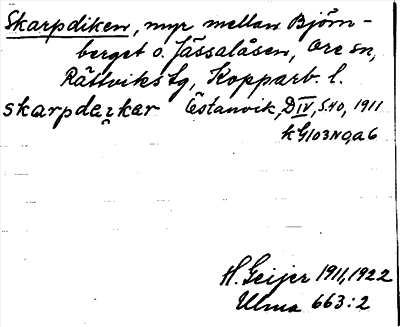 Skarpdiken, myr mellan Björn-
berget o. Jässalåsen, Ore sn,
Rättviks tg, Kopparb. l.
skarpdekar Östanvik, DIV, s. 40, 1911
H. Geijer 1911, 1922
Ulma 663:2